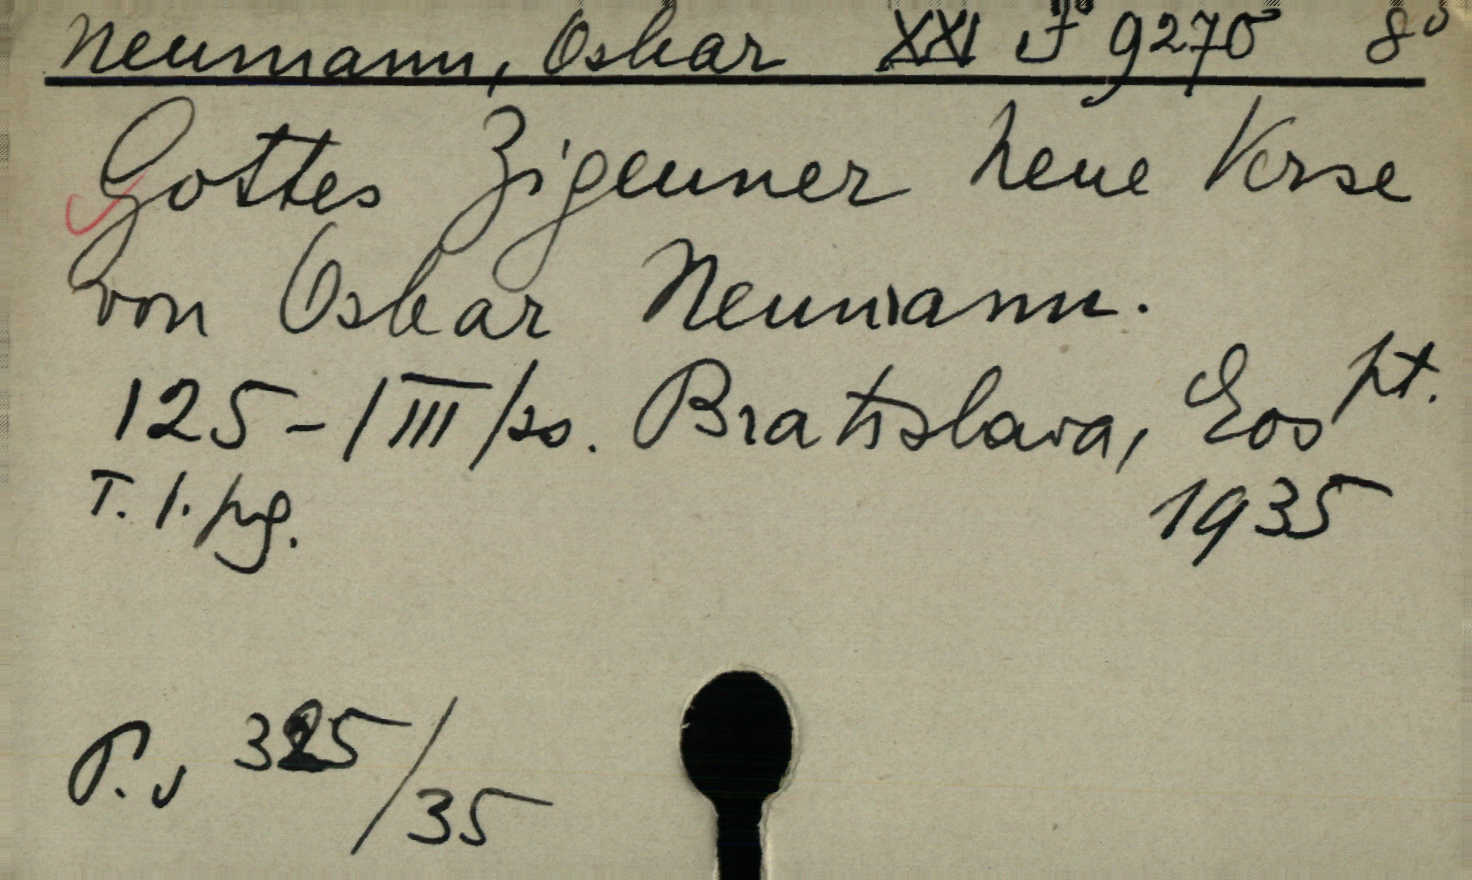 Neumann, Oskar XXI F 9270 8°
Gottes Zigeuner neue Verse
von Oskar Neumann.
125-/III/ss. Bratislava, Eos pt.
T. 1. pg. 1935
325/35